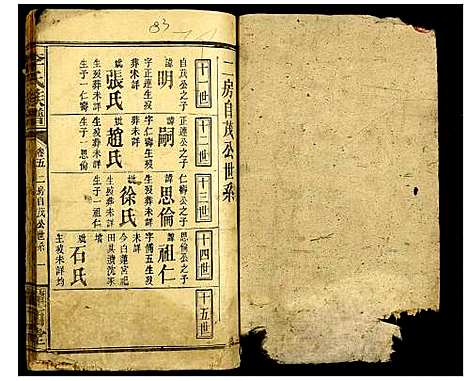 83
二房自茂公世系
十一世
自茂公之子
諱明
字正連生歿
葬未詳
妣張氏
生歿葬未詳
生子一仁壽
十二世
正連公之子
諱嗣
字仁壽生歿
葬未詳
妣趙氏
生歿葬未詳
生子一思倫
十三世
仁壽公之子
諱思倫
生歿葬未詳
妣徐氏
生歿葬未詳
生子一祖仁
十四世
思倫公之子
諱祖仁
字傳五生歿
未詳
妣石氏
生歿未詳均
十五世
氏族譜
卷五
二房自茂公世系